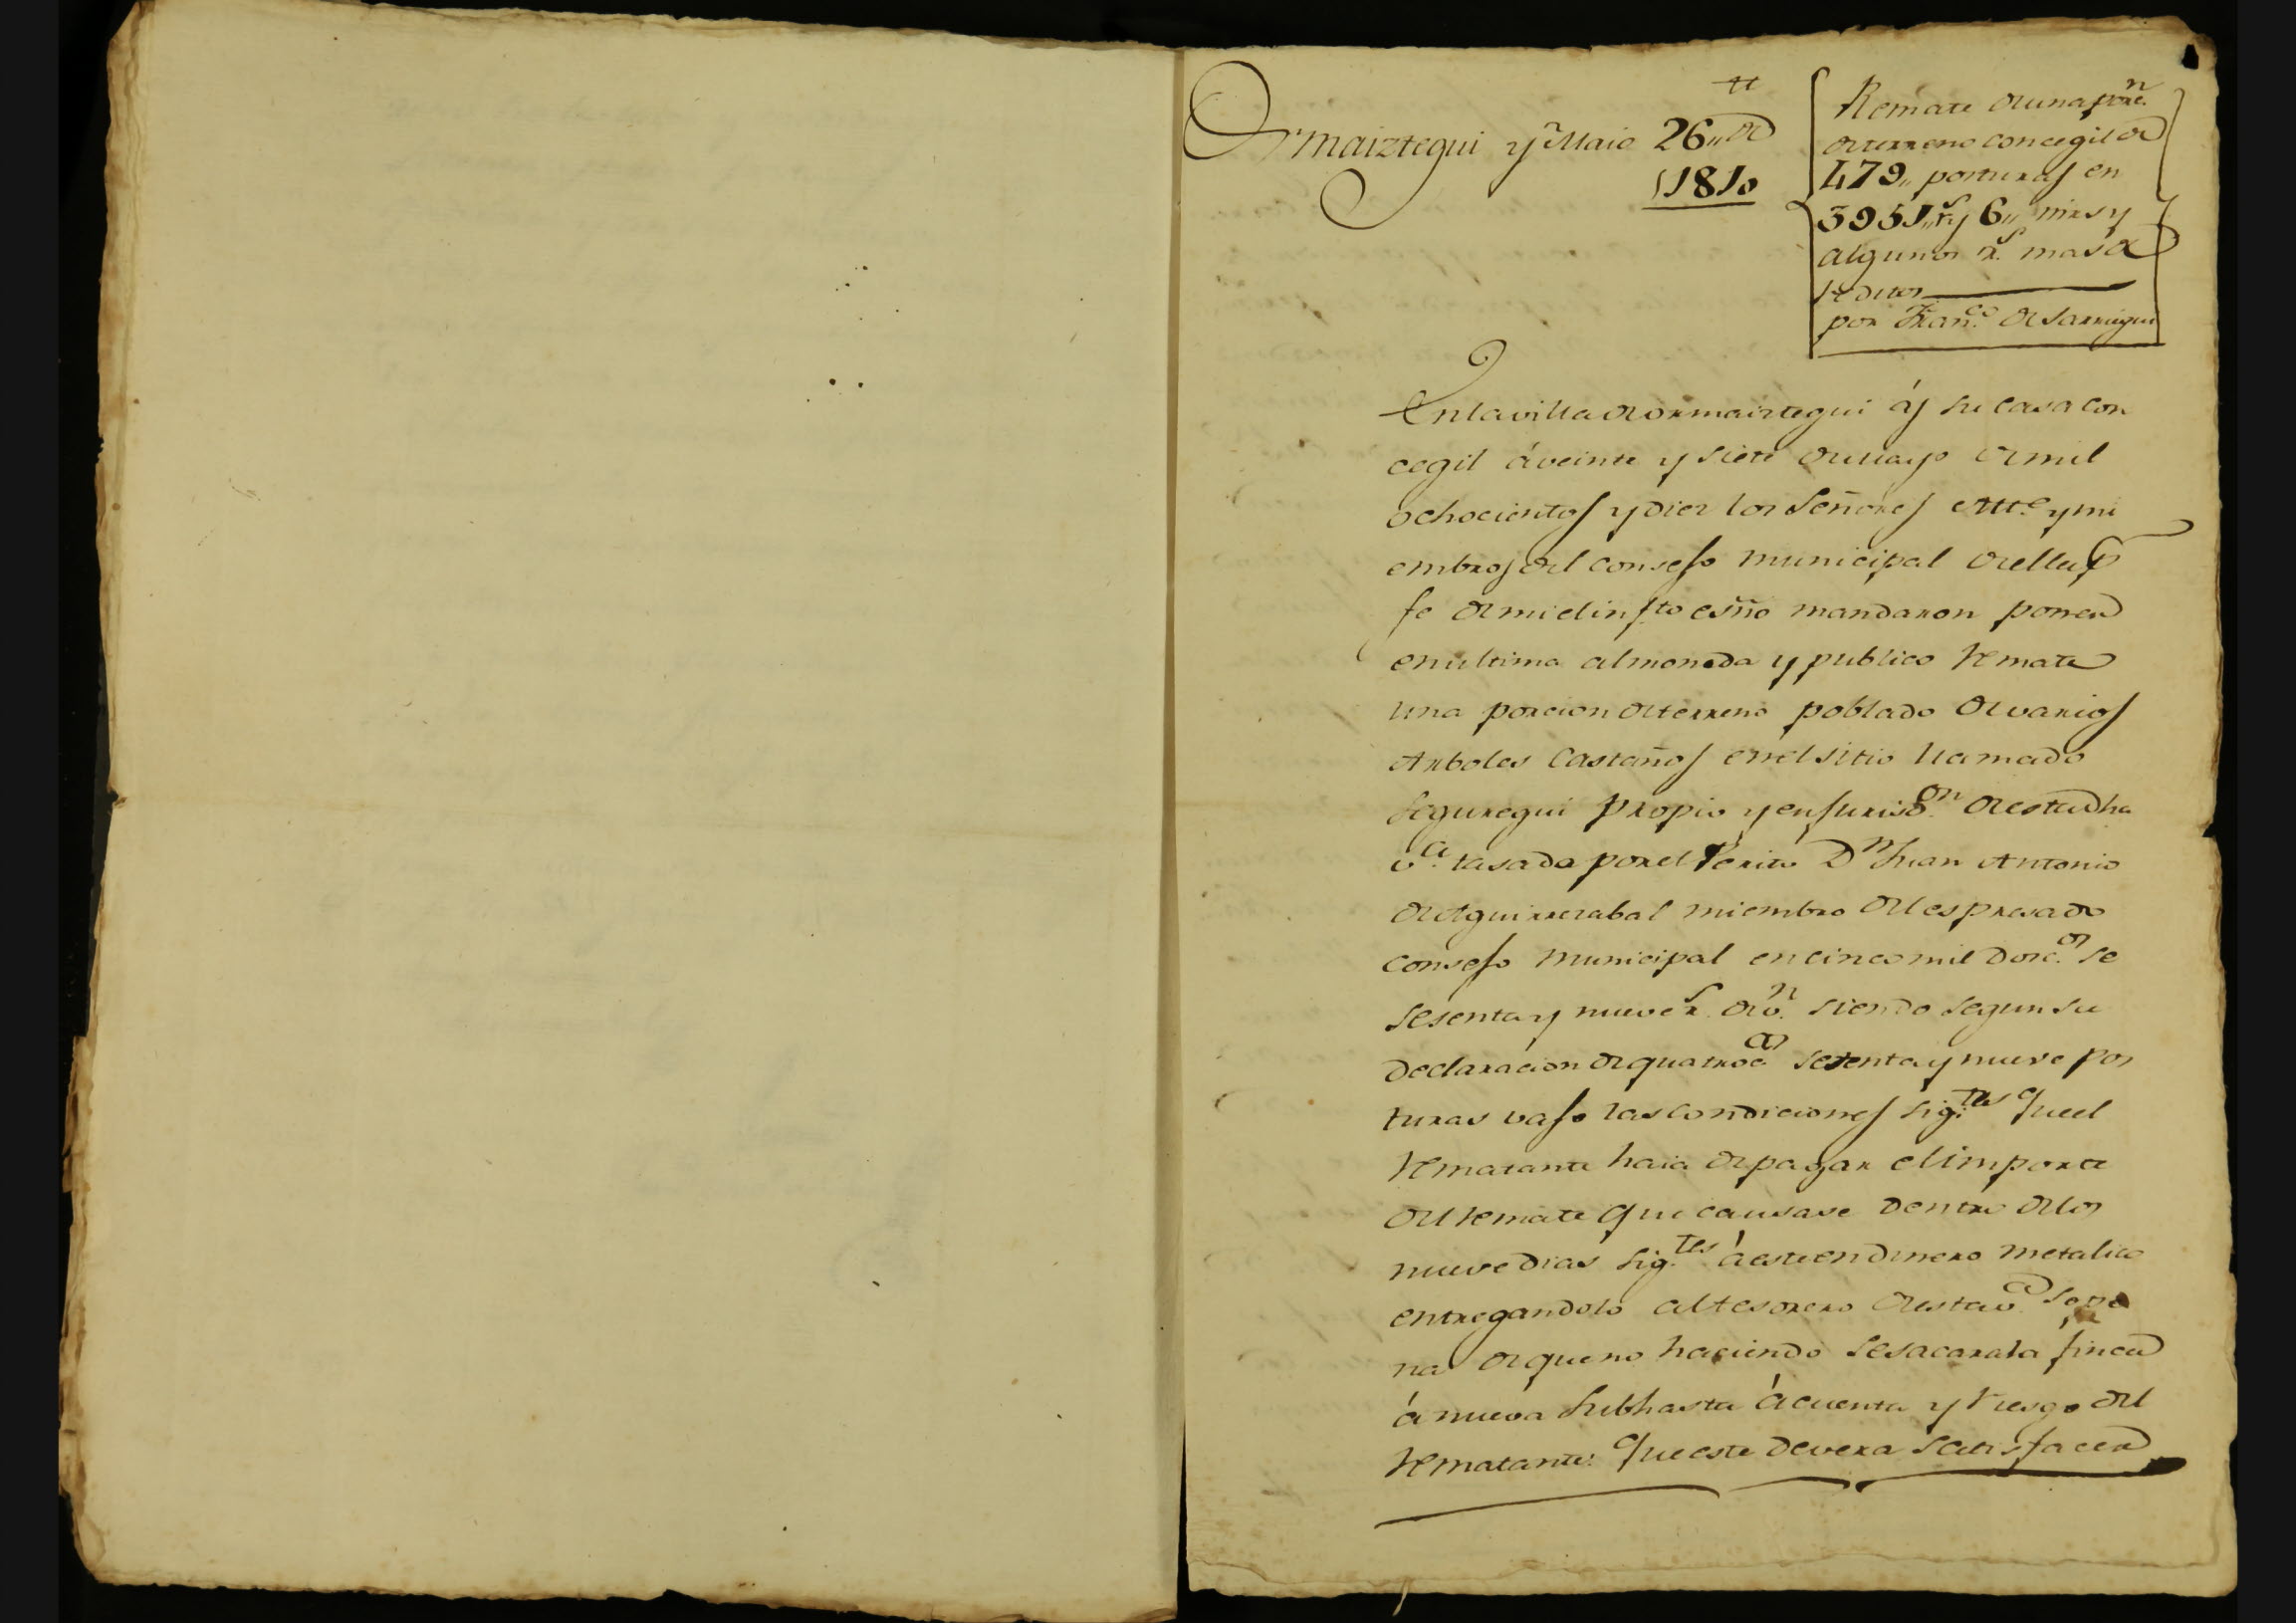 Ormaiztegui y Maio 26,, de
1810
Remate de una porc.n
de terreno concegil de
479,, posturas en
3951,, r.s y 6,, mrs y
algunos r.s mas de
reditos
por Fran.co de Sarriegui
En la villa de Ormaiztegui áy su casa con
cegil á veinte y siete de Mayo de mil
ochocientos y diez los Señores Alt.e y mi
embros del consejo municipal de ella p
fe de mi el infto esño mandaron poner
en ultima almoneda y publico remate
una porcion de terreno poblado de varios
Arboles Castaños en el sitio llamado
Seguregui propio y en jurisd.on de esta dha
v.a tasada por el Perito D.n Juan Antonio
de Aguirrezabal miembro del espresado
consejo municipal en cinco mil dosc.os se
sesenta y nueve r.s de v.n siendo segun su
declaracion de quatroc.as setenta y nueve pos
turas vajo las condiciones sig.tes que el
rematante haia de pagar el importe
del remate que causase dentro de los
nueve dias sig.tes á este en dinero metalico
entregandolo al tesorero de esta v.a so pe
na de que no haciendo se sacara la finca
á nueva subhasta á cuenta y riesgo del
rematante: que este devera satisfacer